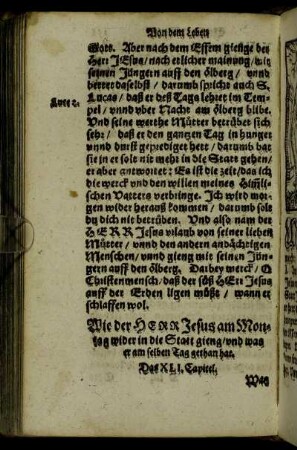 Von dem Leben
Gott. Aber nach dem Essen gienge der
Herr JEsus / nach etlicher mainung / mit
seinen Jüngern auff den ölberg / vnnd
bettet daselbst / darumb spricht auch S.
Luce 2.
Lucas / daß er deß Tags lehret im Tem-
pel / vnnd vber Nacht am ölberg blibe.
Vnd seine werthe Mütter betrübet sich
sehr / daß er den gantzen Tag in hunger
vnnd durst geprediget hett / darumb bat
sie in er solt nit mehr in die Statt gehen /
er aber antwortet : Es ist die zeit / das ich
die werck vnd den willen meines Himli-
schen Vatters verbringe. Ich wird mor-
gen wider herauß kommen / darumb solt
du dich nit betrüben. Vnd also nam der
HERR Jesus vrlaub von seiner lieben
Mütter / vnnd den andern andächtigen
Menschen / vnnd gieng mit seinen Jün-
gern auff den ölberg. Darbey merck / O
Christenmensch / daß der süß HErr Jesus
auff der Erden ligen müßt / wann er
schlaffen wol.
Wie der HERR Jesus am Mon-
tag wider in die Statt gieng / vnd was
er am selben Tag gethan hat.
Das XLI. Capitel.
Was